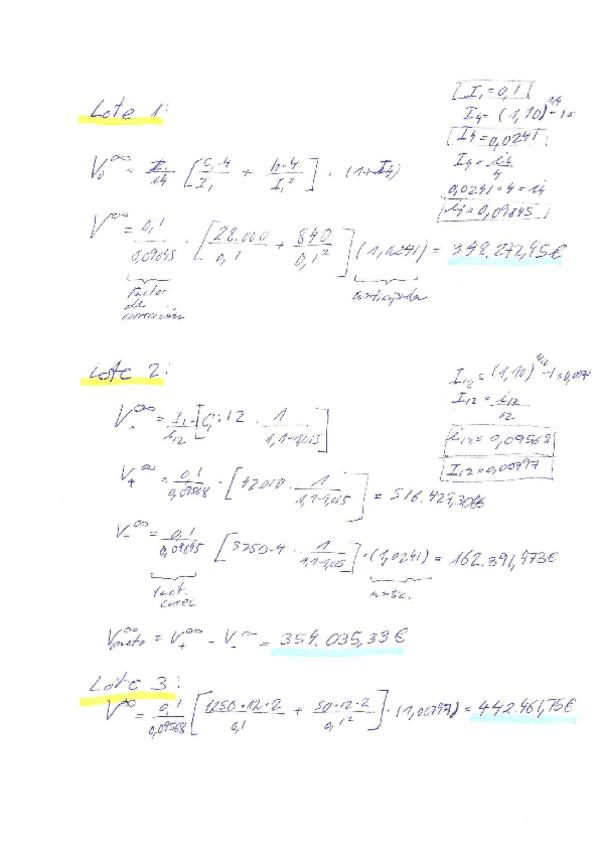 Lote 1:
I₁ = 0,1
I₄ = (1,10)^1/4 - 1 =
I₄ = 0,0241
I₄ = i₄/4
0,0241 · 4 = i₄
i₄ = 0,09645
V₀^∞ = I₁/i₄ [C₁·4/I₁ + h·4/I₁²] · (1+I₄)
V^∞ = 0,1/0,09645 · [28.000/0,1 + 840/0,1²] (1,0241) = 398.272,95€
factor de corrección
anticipada
Lote 2:
I₁₂ = (1,10)^1/12 - 1 = 0,0079
I₁₂ = i₁₂/12
i₁₂ = 0,09568
I₁₂ = 0,00797
V₋^∞ = I₁/i₁₂ · [C₁·12 · 1/1,1-1,015]
V₊^∞ = 0,1/0,09568 · [42000 · 1/1,1-1,015] = 516.427,30€
V₋^∞ = 0,1/0,09645 [3250·4 · 1/1,1-1,015] · (1,0241) = 162.391,973€
fact. correc
antic.
Vneto = V₊^∞ - V₋^∞ = 354.035,33€
Lote 3:
V^∞ = 0,1/0,09568 [1250·12·2/0,1 + 50·12·2/0,1²] · (1,00797) = 442.461,75€